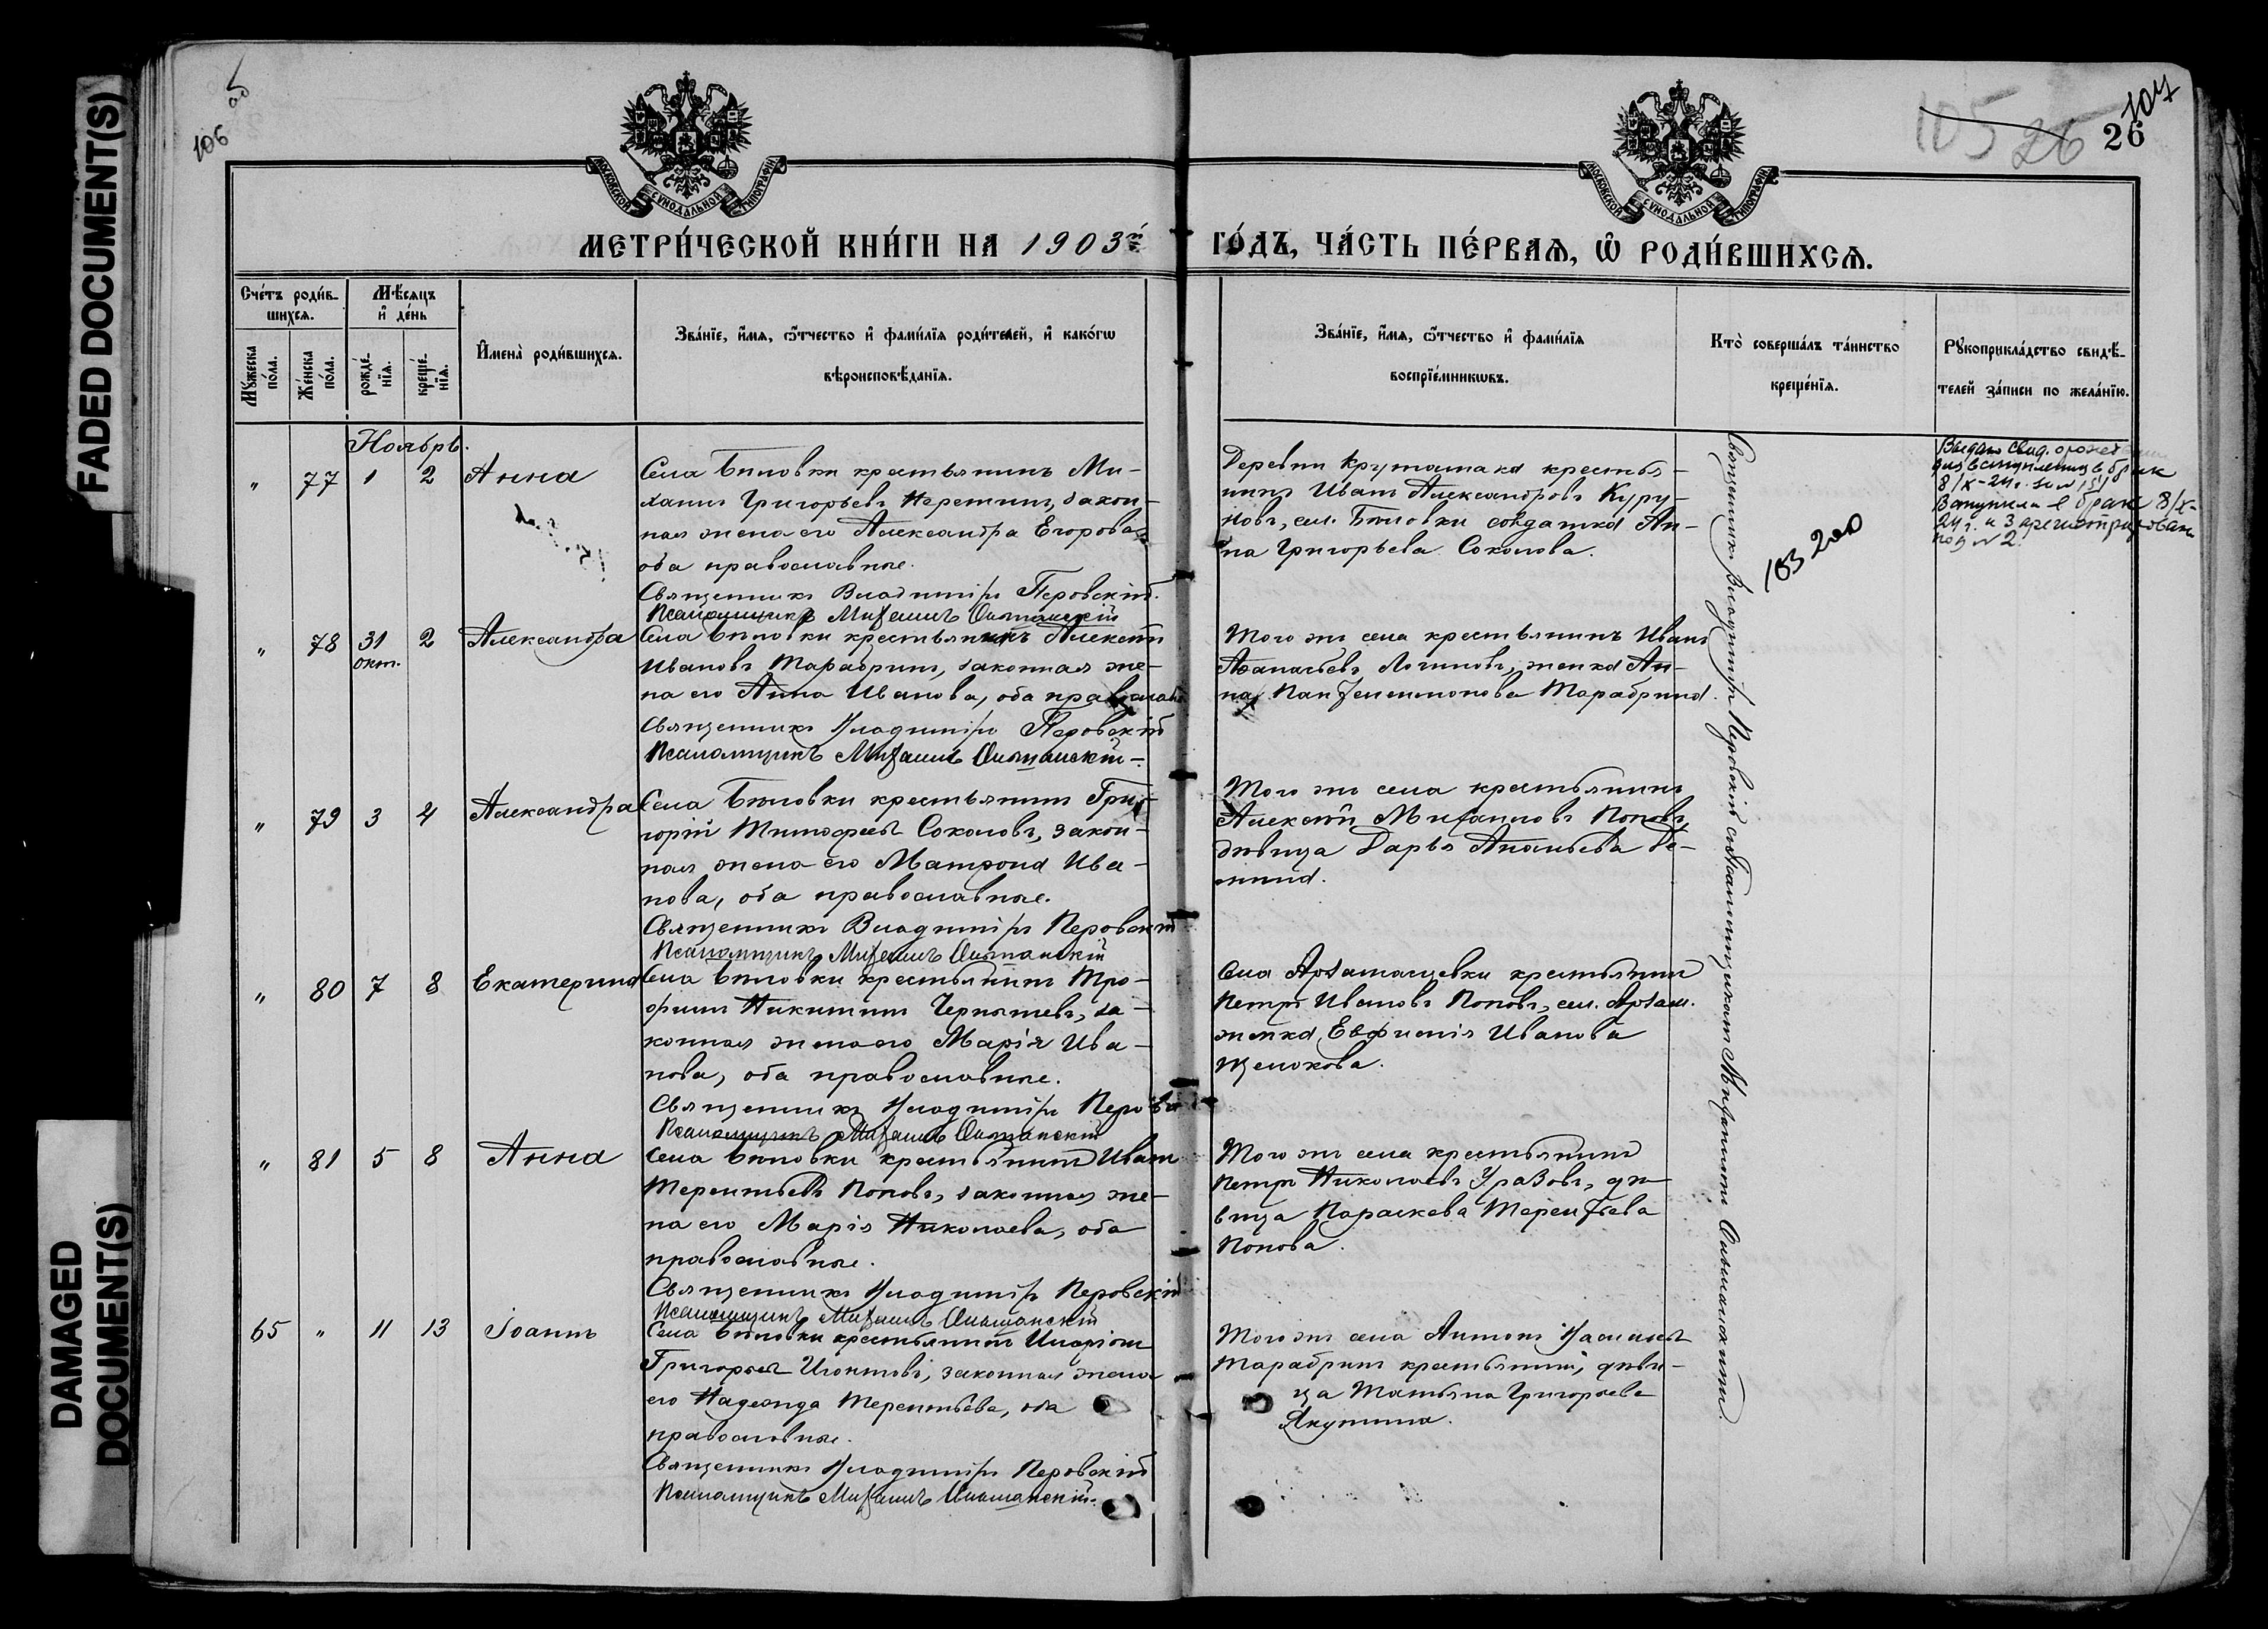 FADED DOCUMENT(S)
DAMAGED
DOCUMENT(S)
106
105 26
26
107
МОСКОВСКОЙ СѴНОДАЛЬНОЙ ТИПОГРАФІИ
МОСКОВСКОЙ СѴНОДАЛЬНОЙ ТИПОГРАФІИ
МЕТРИ́ЧЕСКОЙ КНИ́ГИ НА 1903й
ГО́ДЪ, ЧА́СТЬ ПЕ́РВАѦ, Ѡ҆ РОДИ́ВШИХСѦ.
Сче́тъ роди́в-
шихсѧ.
Мѣ́сѧцъ
и҆ де́нь
Мꙋ́жеска
по́ла.
Же́нска
по́ла.
рожде́-
нїѧ.
креще́-
нїѧ.
И҆мена̀ роди́вшихсѧ.
Зва́нїе, и҆́мѧ, ѻ҆́тчество и҆ фами́лїѧ роди́телей, и҆ како́гѡ
вѣроисповѣ́данїѧ.
Зва́нїе, и҆́мѧ, ѻ҆́тчество и҆ фами́лїѧ
воспрїе́мникѡвъ.
Кто̀ соверша́лъ та́инство
креще́нїѧ.
Рꙋкоприкла́дство свидѣ́-
телей за́писи по жела́нїю.
Ноябрь.
" 77 1 2 Анна
Села Бѣловки крестьянинъ Ми-
хаилъ Григорьевъ Неретинъ, закон-
ная жена его Александра Егорова,
оба православные.
Священникъ Владиміръ Перовскій.
Псаломщикъ Михаилъ
Деревни Крутотака крестья-
нинъ Иванъ Александровъ Куру-
новъ, сел. Бѣловки солдатка Ан-
на Григорьева Соколова.
103 200
Выдано свид. о рожд
для вступления в брак
8/X-24 г. за № 151
Вступила в брак 8/X-
24 г. и зарегистрирован
под № 2.
" 78 31 окт. 2 Александра
Села Бѣловки крестьянинъ Алексѣй
Ивановъ Тарабринъ, законная же-
на его Анна Иванова, оба православ
Священникъ Владиміръ Перовскій
Псаломщикъ Михаилъ
Того же села крестьянинъ Иванъ
Аѳанасьевъ Логиновъ, женка Ан-
на Пантелеимонова Тарабрина.
" 79 3 4 Александра
Села Бѣловки крестьянинъ Гри-
горій Тимоѳеевъ Соколовъ, закон-
ная жена его Матрона Ива-
нова, оба православные.
Священникъ Владиміръ Перовскій
Псаломщикъ Михаилъ
Того же села крестьянинъ
Алексѣй Михаиловъ Поповъ,
дѣвица Дарья Ананьева Де-
мина.
" 80 7 8 Екатерина
Села Бѣловки крестьянинъ Тро-
фимъ Никитинъ Чернышевъ, за-
конная жена его Марія Ива-
нова, оба православные.
Священникъ Владиміръ Перовскі
Псаломщикъ Михаилъ
Села Арзамасцевки крестьянинъ
Петръ Ивановъ Поповъ, сел. Арзам.
женка Евфимія Иванова
Щелокова.
" 81 5 8 Анна
Села Бѣловки крестьянинъ Иванъ
Терентьевъ Поповъ, законная же-
на его Марія Николаева, оба
православные.
Священникъ Владиміръ Перовскій
Псаломщикъ Михаилъ
Того же села крестьянинъ
Петръ Николаевъ Уразовъ, дѣ-
вица Параскева Терентьева
Попова.
65 " 11 13 Іоаннъ
Села Бѣловки крестьянинъ Иларіонъ
Григорьевъ Игонтовъ, законная жена
его Надежда Терентьева, оба
православные.
Священникъ Владиміръ Перовскій
Псаломщикъ Михаилъ
Того же села Антонъ Васильевъ
Тарабринъ крестьянинъ, дѣви-
ца Татьяна Григорьева
Якунина.
Священникъ Владиміръ Перовскій съ псаломщикомъ Михаиломъ